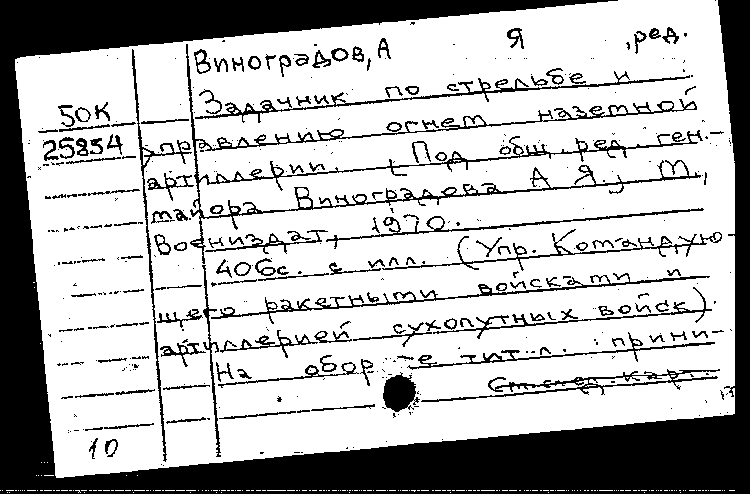 Виноградов, А Я , ред.
Задачник по стрельбе и
50К
25854 управлению огнем наземной
артиллерии. [Под общ. ред. ген.-
майора Виноградова А Я.], М.,
Воениздат, 1970.
406с. с илл. (Упр. Командую-
щего ракетными войсками и
артиллерией сухопутных войск).
На обороте тит. л. : прини-
См. след. карт.
10